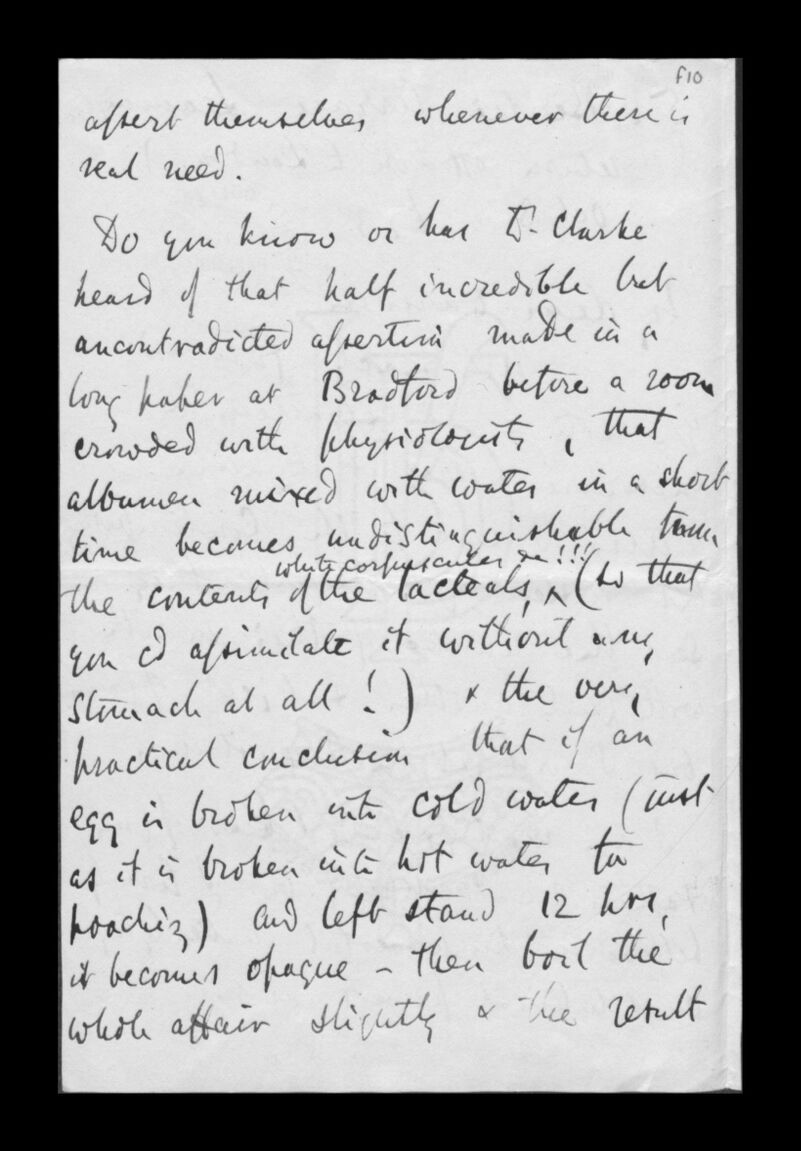 f10
assert themselves whenever there is
real need.
Do you know or has Dr. Clarke
heard of that half incredible but
uncontradicted assertion made in a
long paper at Bradford before a room
crowded with physiologists, that
albumen mixed with water in a short
time becomes undistinguishable from
white corpuscules &c !!!
the contents of the lacteals, ^ (so that
you cd assimilate it without any
stomach at all !) & the very
practical conclusion that if an
egg is broken into cold water (just
as it is broken into hot water for
poaching) and left stand 12 hrs,
it becomes opaque – then boil the
whole affair slightly & the result